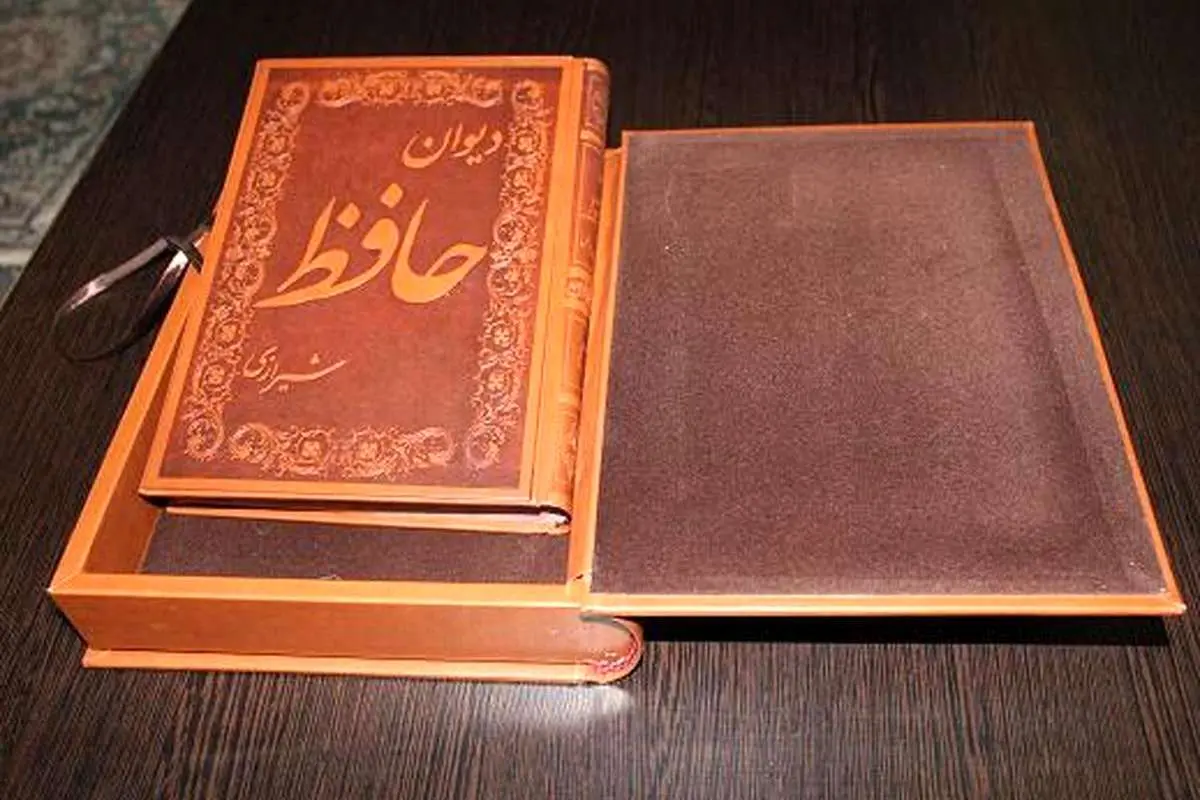 دیوان
حافظ
شیرازی